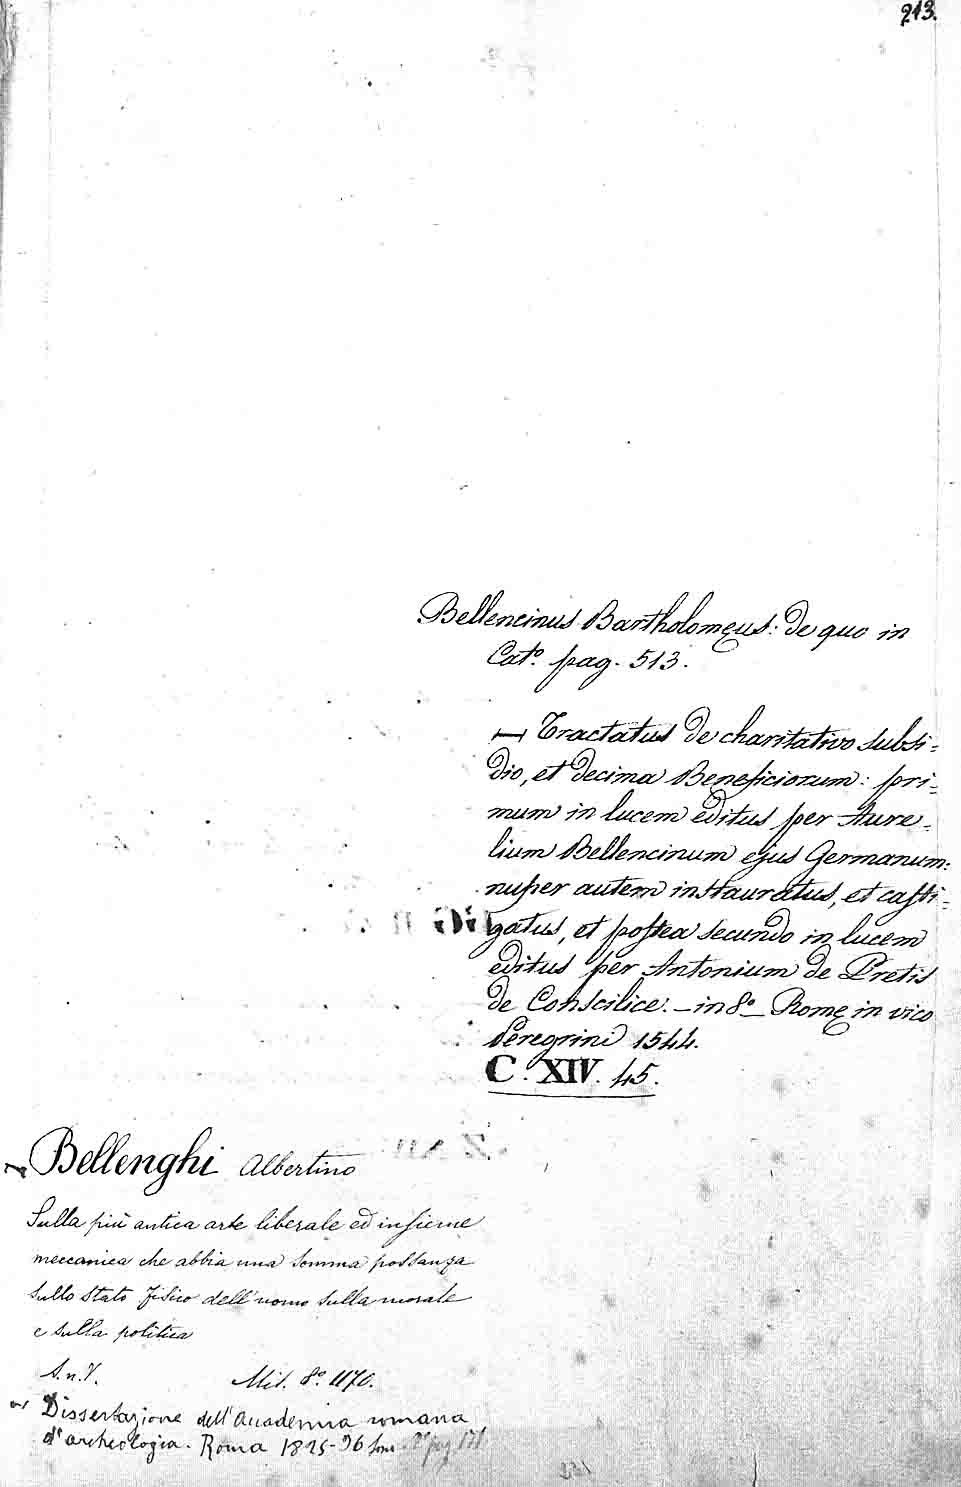 213.
Bellencinus Bartholomęus: de quo in
Cat.º pag. 513.
— Tractatus de charitativo subsi-
dio, et decima Beneficiorum: pri-
mum in lucem editus per Aure-
lium Bellencinum ejus Germanum:
nuper autem instauratus, et casti-
gatus, et postea secundo in lucem
editus per Antonium de Pretis
de Conscilice. - in 8º - Romę in vico
Peregrini 1544.
C. XIV. 45.
Bellenghi Albertino
Sulla più antica arte liberale ed insieme
meccanica che abbia una somma possanza
sullo stato fisico dell'uomo sulla morale
e sulla politica
S.n.T. Mil. 8º 1170.
Dissertazione dell'Accademia romana
d'archeologia. Roma 1825-36 tom 2º pag